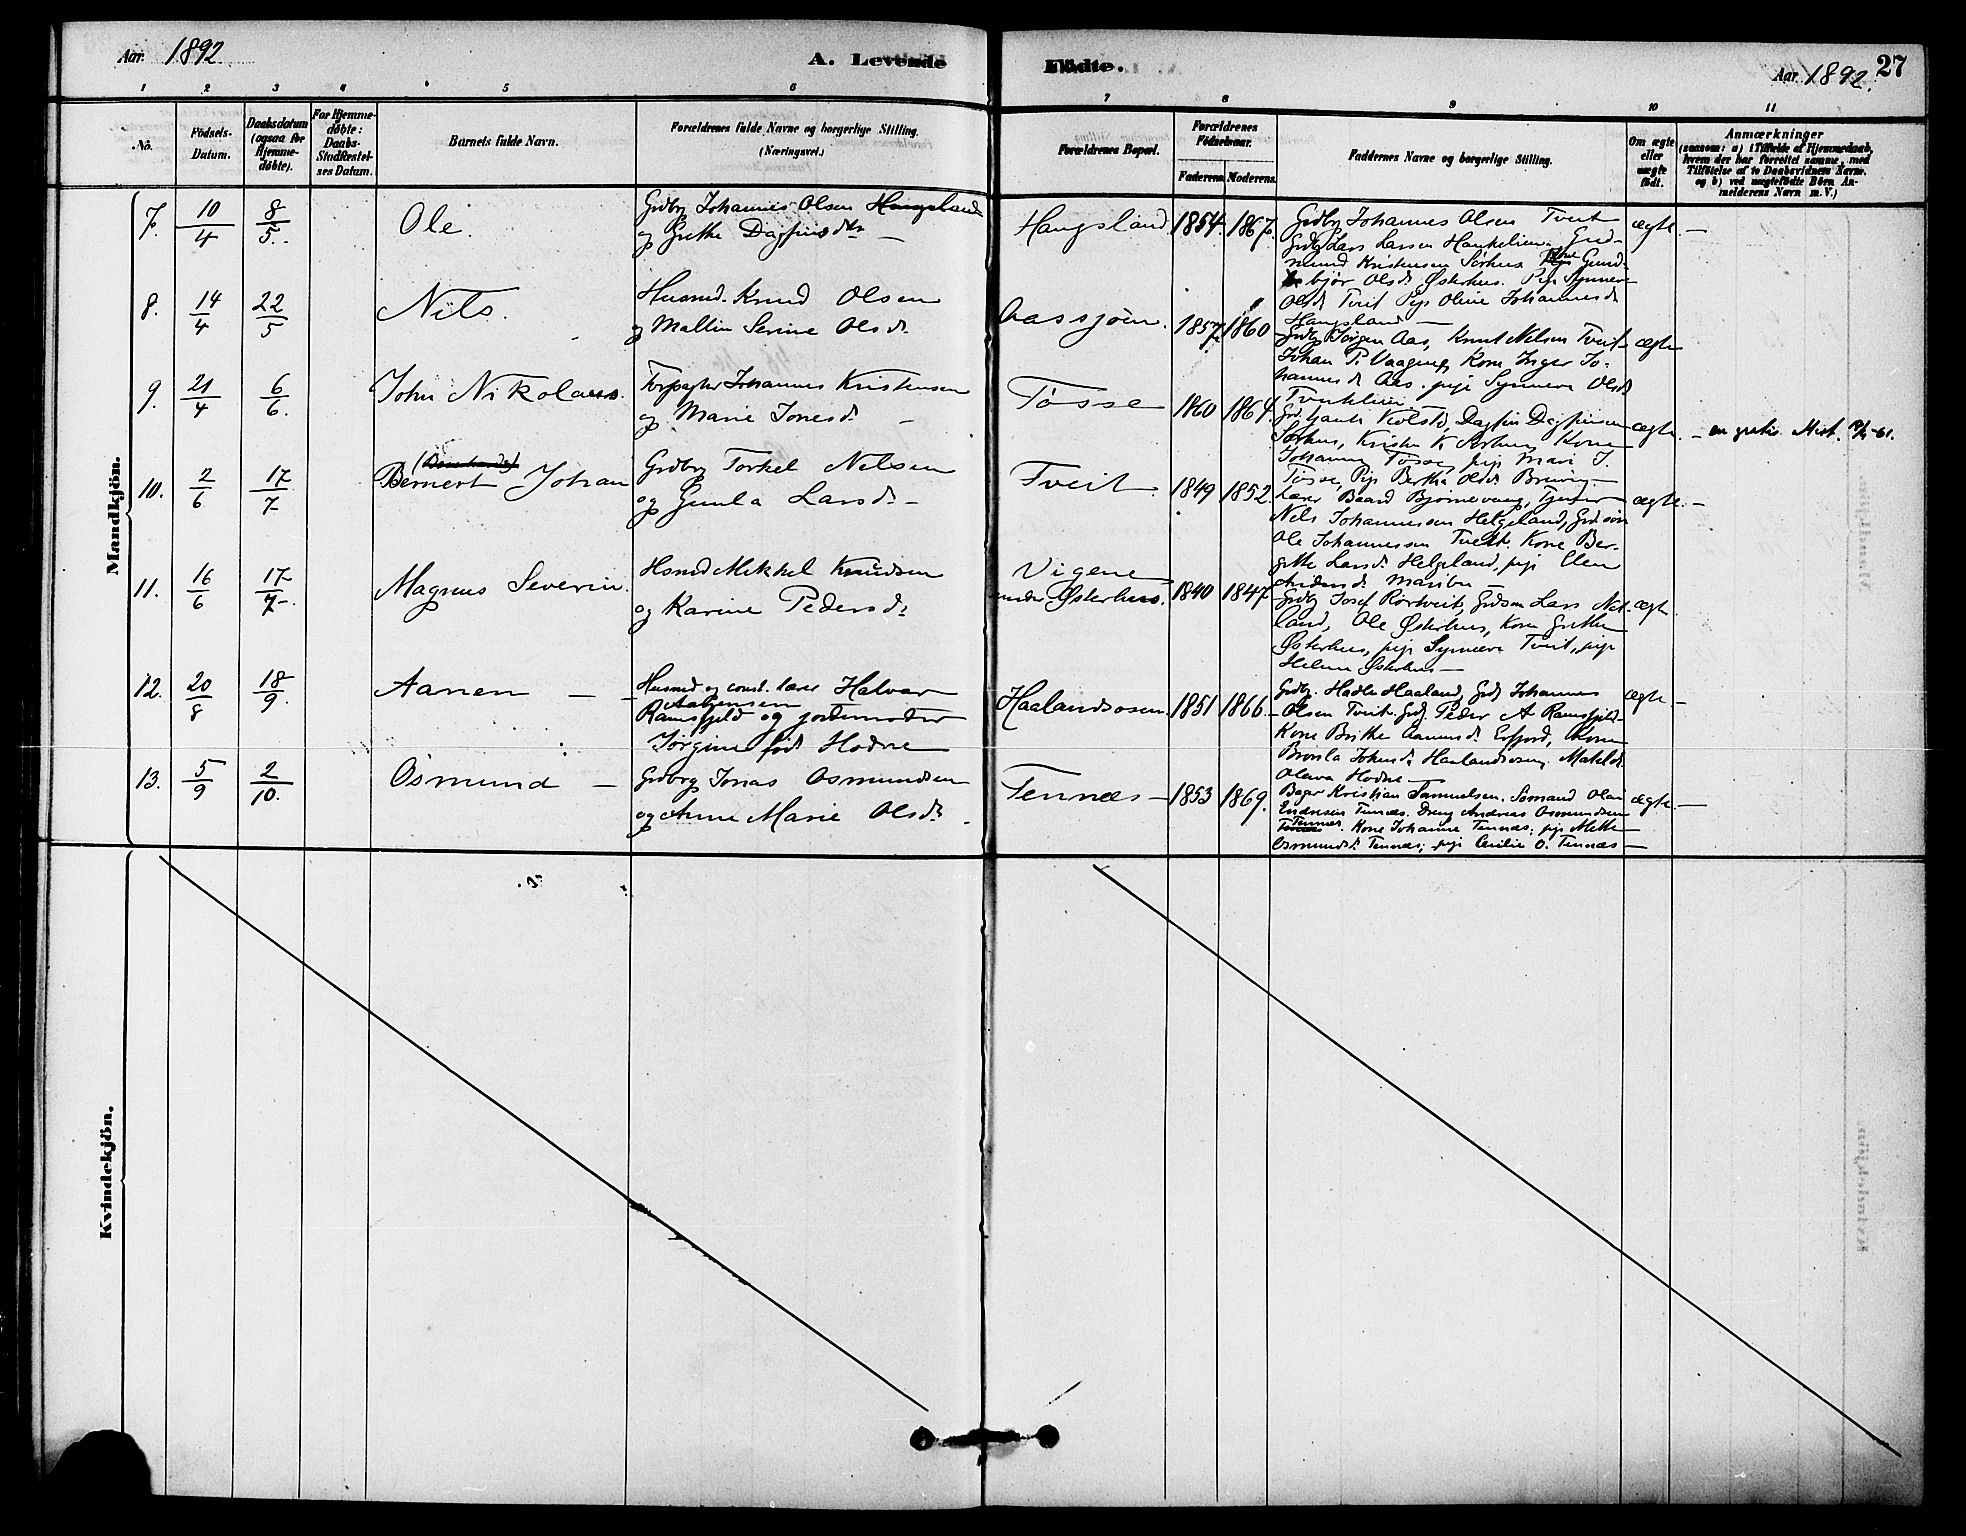 Aar. 1892
A. Levende
Födte.
Aar. 1892.
27
1 2 3 4 5 6 7 8 9 10 11
No.
Födsels-
Datum.
Daabsdatum
(ogsaa for
Hjemme-
døbte).
For Hjemme-
døbte:
Daabs-
Stadfæstel-
ses Datum.
Barnets fulde Navn.
Forældrenes fulde Navne og borgerlige Stilling.
(Næringsvei.)
Forældrenes Bopæl.
Forældrenes
Födselsaar.
Faderens. Moderens.
Faddernes Navne og borgerlige Stilling.
Om ægte
eller
uægte
født.
Anmærkninger
(saasom: a) i Tilfælde af Hjemmedaab,
hvem der har forrettet samme, med
Tilføielse af to Daabsvidners Navne.
og b) ved uægtefødte Börn An-
melderens Navn m. V.)
Mandkjön.
7. 10/4 8/5. Ole.
Grdbr Johannes Olsen Hangsland
og Grethe Dagfinsdtr —
Hangsland 1854. 1867.
Grdbr Johannes Olsen Tveit
Grdbr Lars Larsen Haukelien. Gud-
mund Kristensen Sørhus. Gund-
bjør Olsdr Østerhus. Pige Synneve
Olsdr Tveit Pige Oline Johannesdr
Hangsland —
ægte. —
8. 14/4 22/5 Nils.
Husmd. Knud Olsen
og Mallin Serine Olsdr.
Aassjøen. 1857. 1860
Grdbr Jørgen Aas, Knut Nelsen Tveit
Johan P. Vaagen, Kone Inger Jo-
hannesdr Aas. pige Synneva Olsdr
Tveitelien
ægte
9. 21/4 6/6. John Nikolaus.
Forpagter Johannes Kristensen
og Marie Jonesdr —
Tösse 1860 1864.
Kolstø, Dagfin Dagfinsen
Sørhus, Kristen K. Sørhus, Kone
Johanne Tøsse, pige Mari J.
Tøsse, Pige Bertha Olsdr
ægte. —
10. 2/6 17/7 Bernert Johan
Grdbr Torkel Nilsen
og Gunla Larsdr —
Tveit 1849 1852.
Lærer Baard Bjørnevaag,
Nels Johannessen Helgeland, Grdsøn
Ole Johannessen Tveit. Kone Ber-
gitte Larsdr Helgeland, pige Elen
Andersdr Maribu —
ægte. —
11. 16/6 17/7. Magnus Severin.
Hsmd Mikkel Knudsen
og Karine Pedersdr
Vigene
under Østerhus. 1840 1847
Grdbr Josef Rørtveit, Grdsøn Lars Net-
land, Ole Østerhus, Kone Grethe
Østerhus, pige Synneve Tveit, pige
Helene Østerhus —
ægte.
12. 20/8 18/9. Aanen —
Husmd og const. lærer Halvar
Aadnensen
Ramsfjeld og jordemoder
Jørgine født Hodne
Haalandsosen. 1851 1866.
Grdbr. Hadle Haaland, Grdbr Johannes
Olsen Tveit. Grdbr. Peder A Ramsfjeld
Kone Brithe Aamundsdr Erfjord, Kone
Bronla Haalandsosen, Matilde
Olava Hodne —
ægte —
13. 5/9 2/10. Osmund —
Grdbrg Jonas Osmundsen
og Anne Marie Olsdr.
Tennæs — 1853 1869.
Bager Kristian Samuelsen. Sømand Olai
Endresen Tennæs. Dreng Andreas Osmundsen
Tennæs. Kone Johanne Tennæs; pige Mette
Osmundsdr. Tennæs; pige Cecilie O. Tennæs —
ægte —
Kvindekjön.